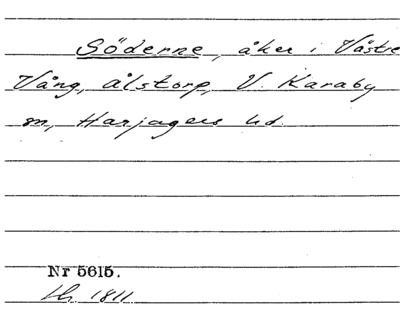 Söderne, åker i Västre
Vång, Ålstorp, V. Karaby
sn, Harjagers hd.
Nr 5615.
LG. 1811